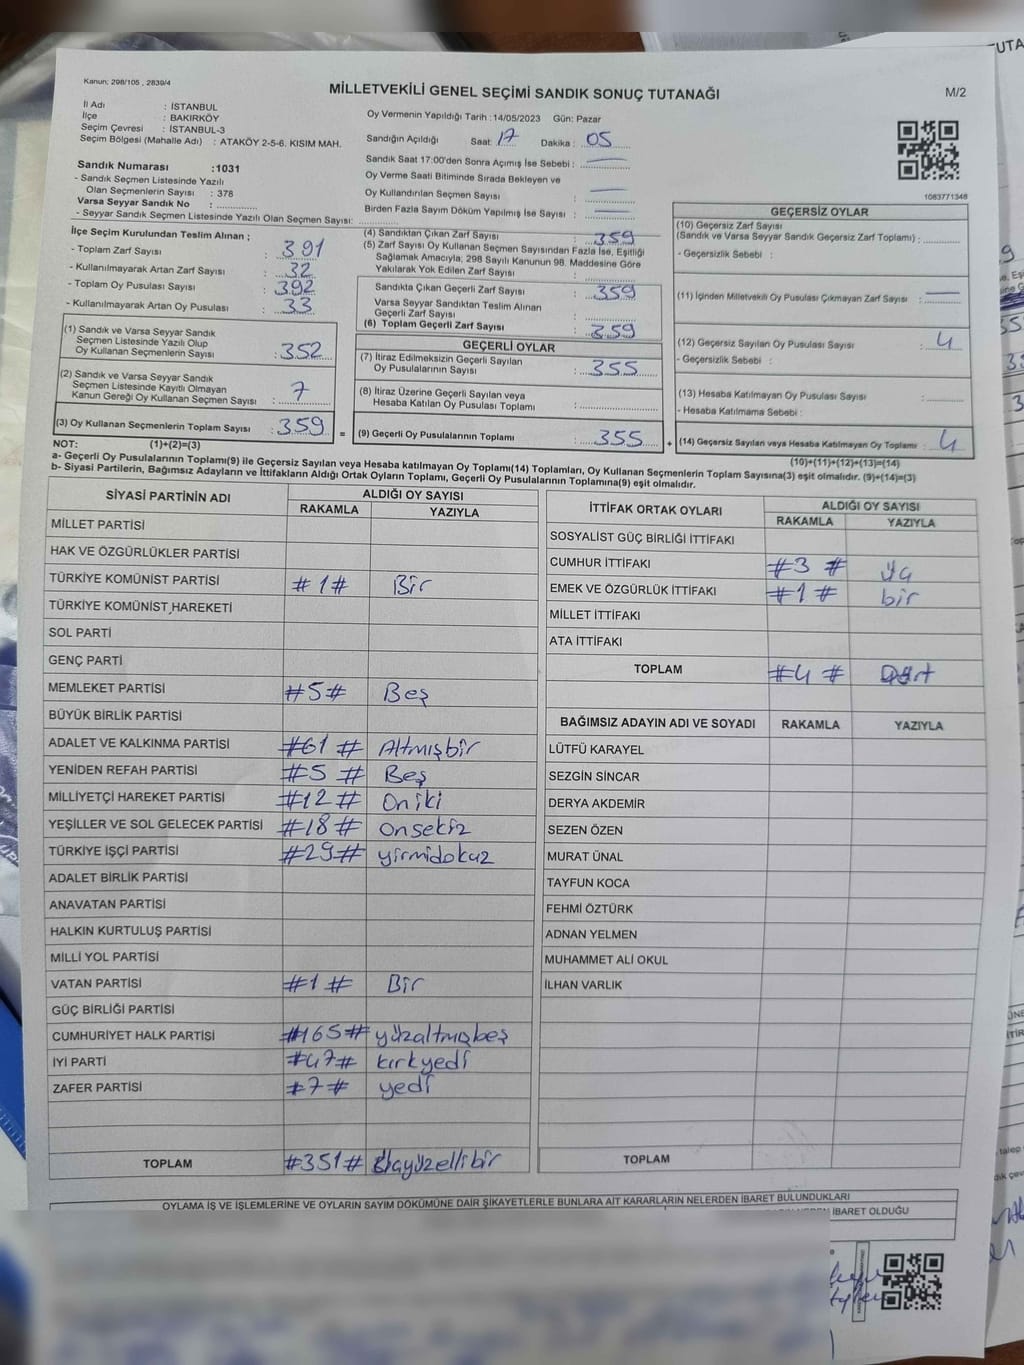 Kanun; 298/105 , 2839/4
MİLLETVEKİLİ GENEL SEÇİMİ SANDIK SONUÇ TUTANAĞI
M/2
İl Adı : İSTANBUL
İlçe : BAKIRKÖY
Seçim Çevresi : İSTANBUL-3
Seçim Bölgesi (Mahalle Adı) : ATAKÖY 2-5-6. KISIM MAH.
Sandık Numarası :1031
- Sandık Seçmen Listesinde Yazılı
Olan Seçmenlerin Sayısı : 378
Varsa Seyyar Sandık No :
- Seyyar Sandık Seçmen Listesinde Yazılı Olan Seçmen Sayısı:
Oy Vermenin Yapıldığı Tarih : 14/05/2023 Gün: Pazar
Sandığın Açıldığı Saat: 17 Dakika : 05
Sandık Saat 17:00'den Sonra Açımış İse Sebebi :
Oy Verme Saati Bitiminde Sırada Bekleyen ve
Oy Kullandırılan Seçmen Sayısı :
Birden Fazla Sayım Döküm Yapılmış İse Sayısı :
1083771348
İlçe Seçim Kurulundan Teslim Alınan ;
- Toplam Zarf Sayısı : 391
- Kullanılmayarak Artan Zarf Sayısı : 32
- Toplam Oy Pusulası Sayısı : 392
- Kullanılmayarak Artan Oy Pusulası : 33
(1) Sandık ve Varsa Seyyar Sandık
Seçmen Listesinde Yazılı Olup
Oy Kullanan Seçmenlerin Sayısı : 352
(2) Sandık ve Varsa Seyyar Sandık
Seçmen Listesinde Kayıtlı Olmayan
Kanun Gereği Oy Kullanan Seçmen Sayısı : 7
(3) Oy Kullanan Seçmenlerin Toplam Sayısı : 359
(4) Sandıktan Çıkan Zarf Sayısı : 359
(5) Zarf Sayısı Oy Kullanan Seçmen Sayısından Fazla İse, Eşitliği
Sağlamak Amacıyla, 298 Sayılı Kanunun 98. Maddesine Göre
Yakılarak Yok Edilen Zarf Sayısı :
Sandıkta Çıkan Geçerli Zarf Sayısı : 359
Varsa Seyyar Sandıktan Teslim Alınan
Geçerli Zarf Sayısı :
(6) Toplam Geçerli Zarf Sayısı : 359
GEÇERLİ OYLAR
(7) İtiraz Edilmeksizin Geçerli Sayılan
Oy Pusulalarının Sayısı : 355
(8) İtiraz Üzerine Geçerli Sayılan veya
Hesaba Katılan Oy Pusulası Toplamı :
= (9) Geçerli Oy Pusulalarının Toplamı : 355 +
GEÇERSİZ OYLAR
(10) Geçersiz Zarf Sayısı
(Sandık ve Varsa Seyyar Sandık Geçersiz Zarf Toplamı) :
- Geçersizlik Sebebi :
(11) İçinden Milletvekili Oy Pusulası Çıkmayan Zarf Sayısı :
(12) Geçersiz Sayılan Oy Pusulası Sayısı : 4
- Geçersizlik Sebebi :
(13) Hesaba Katılmayan Oy Pusulası Sayısı :
- Hesaba Katılmama Sebebi :
(14) Geçersiz Sayılan veya Hesaba Katılmayan Oy Toplamı : 4
NOT: (1)+(2)=(3) (10)+(11)+(12)+(13)=(14)
a- Geçerli Oy Pusulalarının Toplamı(9) ile Geçersiz Sayılan veya Hesaba katılmayan Oy Toplamı(14) Toplamları, Oy Kullanan Seçmenlerin Toplam Sayısına(3) eşit olmalıdır. (9)+(14)=(3)
b- Siyasi Partilerin, Bağımsız Adayların ve İttifakların Aldığı Ortak Oyların Toplamı, Geçerli Oy Pusulalarının Toplamına(9) eşit olmalıdır.
SİYASİ PARTİNİN ADI ALDIĞI OY SAYISI
RAKAMLA YAZIYLA
MİLLET PARTİSİ
HAK VE ÖZGÜRLÜKLER PARTİSİ
TÜRKİYE KOMÜNİST PARTİSİ #1# Bir
TÜRKİYE KOMÜNİST HAREKETİ
SOL PARTİ
GENÇ PARTİ
MEMLEKET PARTİSİ #5# Beş
BÜYÜK BİRLİK PARTİSİ
ADALET VE KALKINMA PARTİSİ #61# Altmışbir
YENİDEN REFAH PARTİSİ #5# Beş
MİLLİYETÇİ HAREKET PARTİSİ #12# Oniki
YEŞİLLER VE SOL GELECEK PARTİSİ #18# onsekiz
TÜRKİYE İŞÇİ PARTİSİ #29# yirmidokuz
ADALET BİRLİK PARTİSİ
ANAVATAN PARTİSİ
HALKIN KURTULUŞ PARTİSİ
MİLLİ YOL PARTİSİ
VATAN PARTİSİ #1# Bir
GÜÇ BİRLİĞİ PARTİSİ
CUMHURİYET HALK PARTİSİ #165# yüzaltmışbeş
İYİ PARTİ #47# kırkyedi
ZAFER PARTİSİ #7# yedi
TOPLAM #351#
İTTİFAK ORTAK OYLARI ALDIĞI OY SAYISI
RAKAMLA YAZIYLA
SOSYALİST GÜÇ BİRLİĞİ İTTİFAKI
CUMHUR İTTİFAKI #3#
EMEK VE ÖZGÜRLÜK İTTİFAKI #1# bir
MİLLET İTTİFAKI
ATA İTTİFAKI
TOPLAM #4# Dört
BAĞIMSIZ ADAYIN ADI VE SOYADI RAKAMLA YAZIYLA
LÜTFÜ KARAYEL
SEZGİN SİNCAR
DERYA AKDEMİR
SEZEN ÖZEN
MURAT ÜNAL
TAYFUN KOCA
FEHMİ ÖZTÜRK
ADNAN YELMEN
MUHAMMET ALİ OKUL
İLHAN VARLIK
TOPLAM
OYLAMA İŞ VE İŞLEMLERİNE VE OYLARIN SAYIM DÖKÜMÜNE DAİR ŞİKAYETLERLE BUNLARA AİT KARARLARIN NELERDEN İBARET BULUNDUKLARI
İBARET OLDUĞU